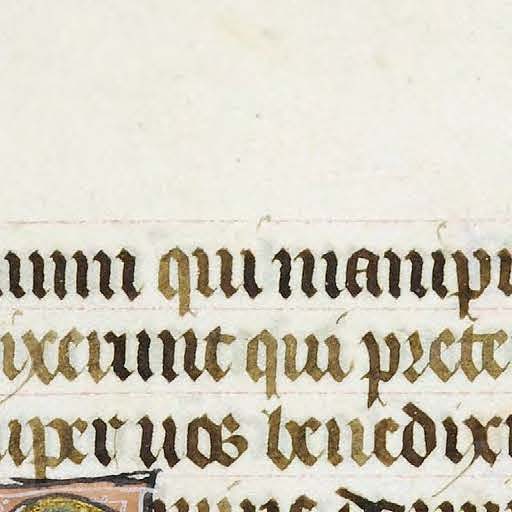 uum qui manipu
ixerunt qui prete
uper uos benedixi